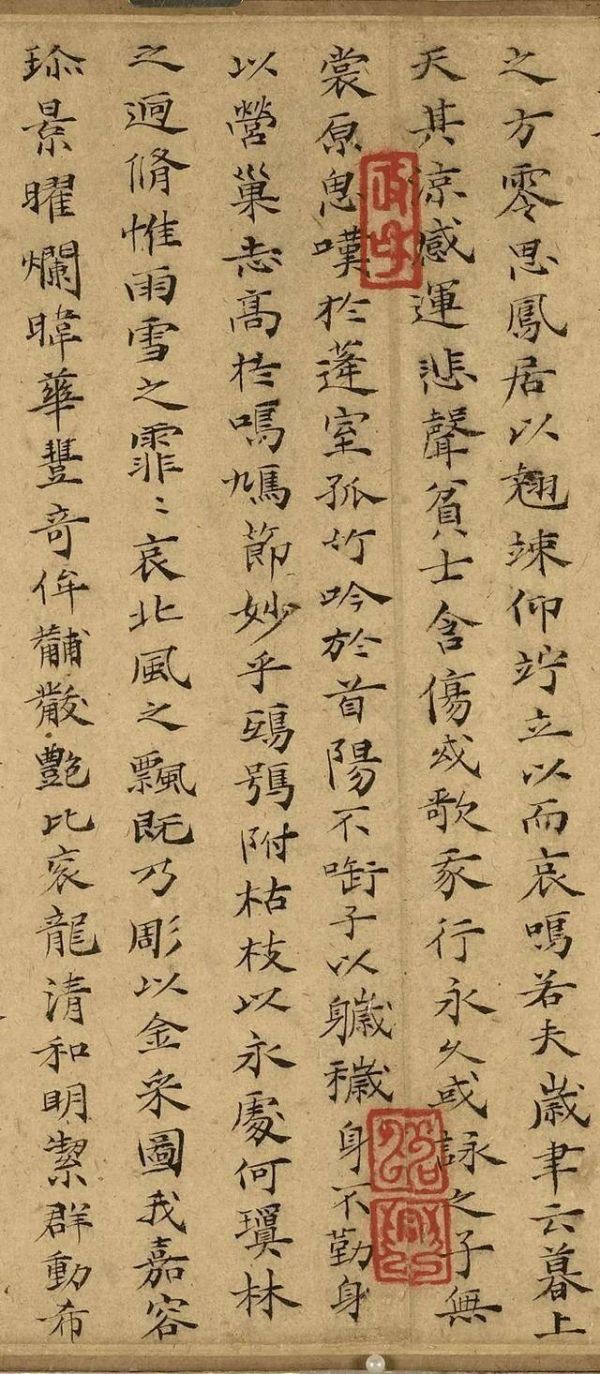 之方零思鳳居以翹竦仰竚立以而哀鳴若夫歲聿云暮上
天其涼感運悲聲貧士含傷或歌豕行永久或詠之子無
裳原思嘆於蓬室孤竹吟於首陽不銜子以穢身不勤身
以營巢志高於鳴鳩節妙乎鴟鴞附枯枝以永處何瓊林
之迥脩惟雨雪之霏〻哀北風之飄既乃彫以金采圖我嘉容
珎景曜爛暐華豐奇侔黼黻艷比衮龍清和明絜群動希